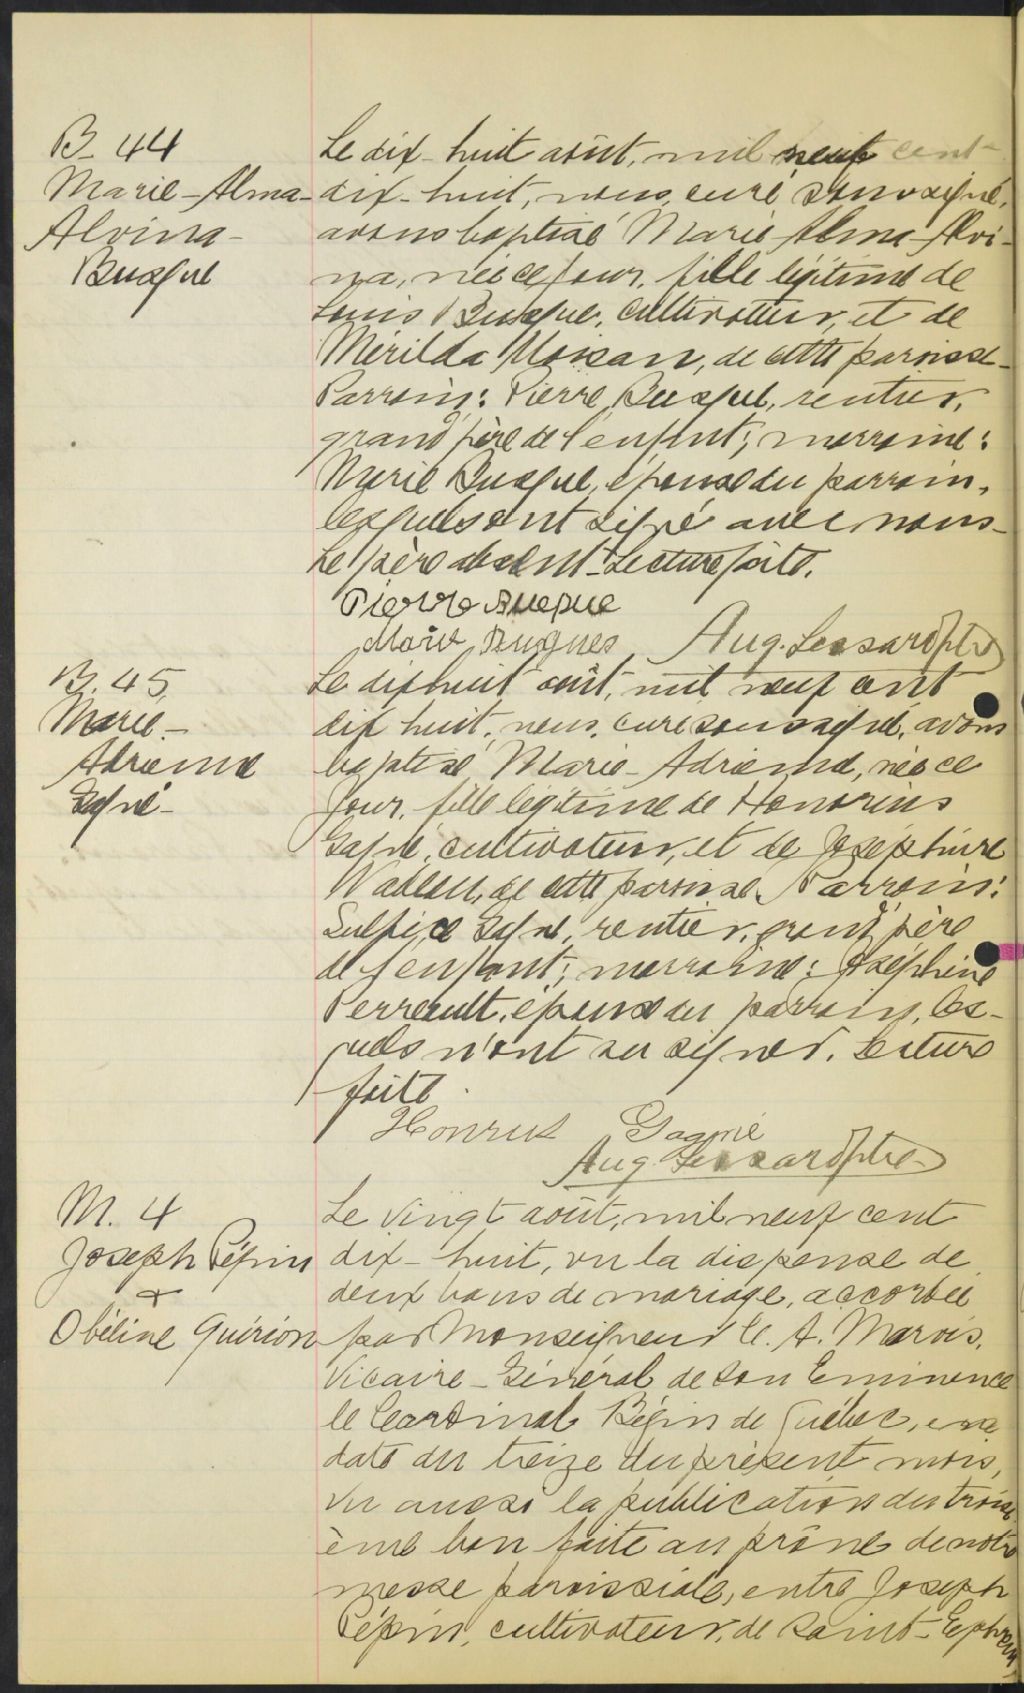 B. 44
Marie-Alma-
Alvina-
Busque
Le dix-huit août, mil neuf cent
dix-huit, nous, curé soussigné,
avons baptisé Marie-Alma-Alvi-
na, née ce jour, fille légitime de
Louis Busque, cultivateur, et de
Mérilda Moisan, de cette paroisse-
Parrain: Pierre Busque, rentier,
grand père de l'enfant; marraine:
Marie Busque, épouse du parrain,
lesquels ont signé avec nous-
Le père absent. Lecture faite.
Pierre Busque
Marie Auguste Lessard ptre
B. 45
Marie-
Adrienne
Gagné-
Le dix huit août, mil neuf cent
dix huit, nous, curé soussigné, avons
baptisé Marie-Adrienne, née ce
jour, fille légitime de Honorius
Gagné, cultivateur, et de Joséphine
Nadeau, de cette paroisse. Parrain:
Sulpice Gagné, rentier, grand père
de l'enfant; marraine: Joséphine
Perreault, épouse du parrain, les-
quels n'ont su signer. Lecture
faite.
Gagné
Aug. Lessard ptre
M. 4
Joseph Pépin
+
Obéline Quirion
Le vingt août, mil neuf cent
dix-huit, vu la dispense de
deux bans de mariage, accordée
par Monseigneur C. A. Marois,
Vicaire-Général de Son Eminence
le Cardinal Bégin de Québec, en
date du treize du présent mois,
vu aussi la publication du troisi
ème ban faite au prône de notre
messe paroissiale, entre Joseph
Pépin, cultivateur, de Saint-Ephrem